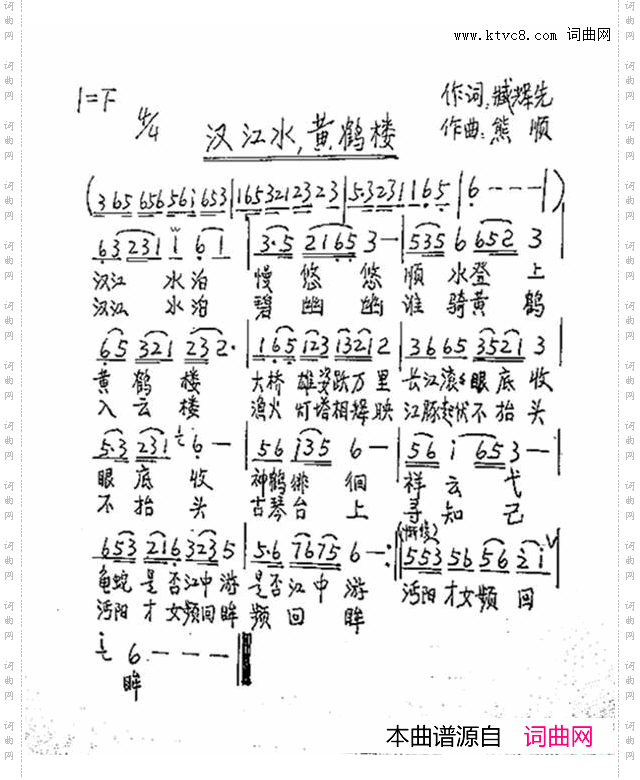 www.ktvc8.com 词曲网
1=F 4/4
汉江水,黄鹤楼
作词:臧辉先
作曲:熊 顺
(365 656 56i 653|165 321 23 2 3|5·323 1 1 65|6 - - -|)
63 231 i 6 1 |3·5 2165 3 -|535 6 652 3|
汉江 水泊 慢 悠 悠 顺 水登 上
汉江 水泊 碧 幽 幽 谁 骑黄 鹤
65 321 232·|165 123 13212|3665 3521 3|
黄 鹤 楼 大桥 雄姿跃万 里 长江滚滚眼 底 收
入 云 楼 渔火 灯塔相辉 映 江豚起伏不 抬 头
5·3 231 6 -|56 i35 6 -|56 i 65 3 -|
眼 底 收 神鹤徘 徊 祥 云 弋
不 抬 头 古琴台 上 寻 知 己
653 216 323 5|5·6 7675 6 -:‖(慨慢)553 56 56 2i V
龟蛇 是否江中 游 是否 江 中 游 沔阳 才女频 回
沔阳 才 女频回眸 频 回 眸
6 - - -‖
眸
本曲谱源自 词曲网
词曲网